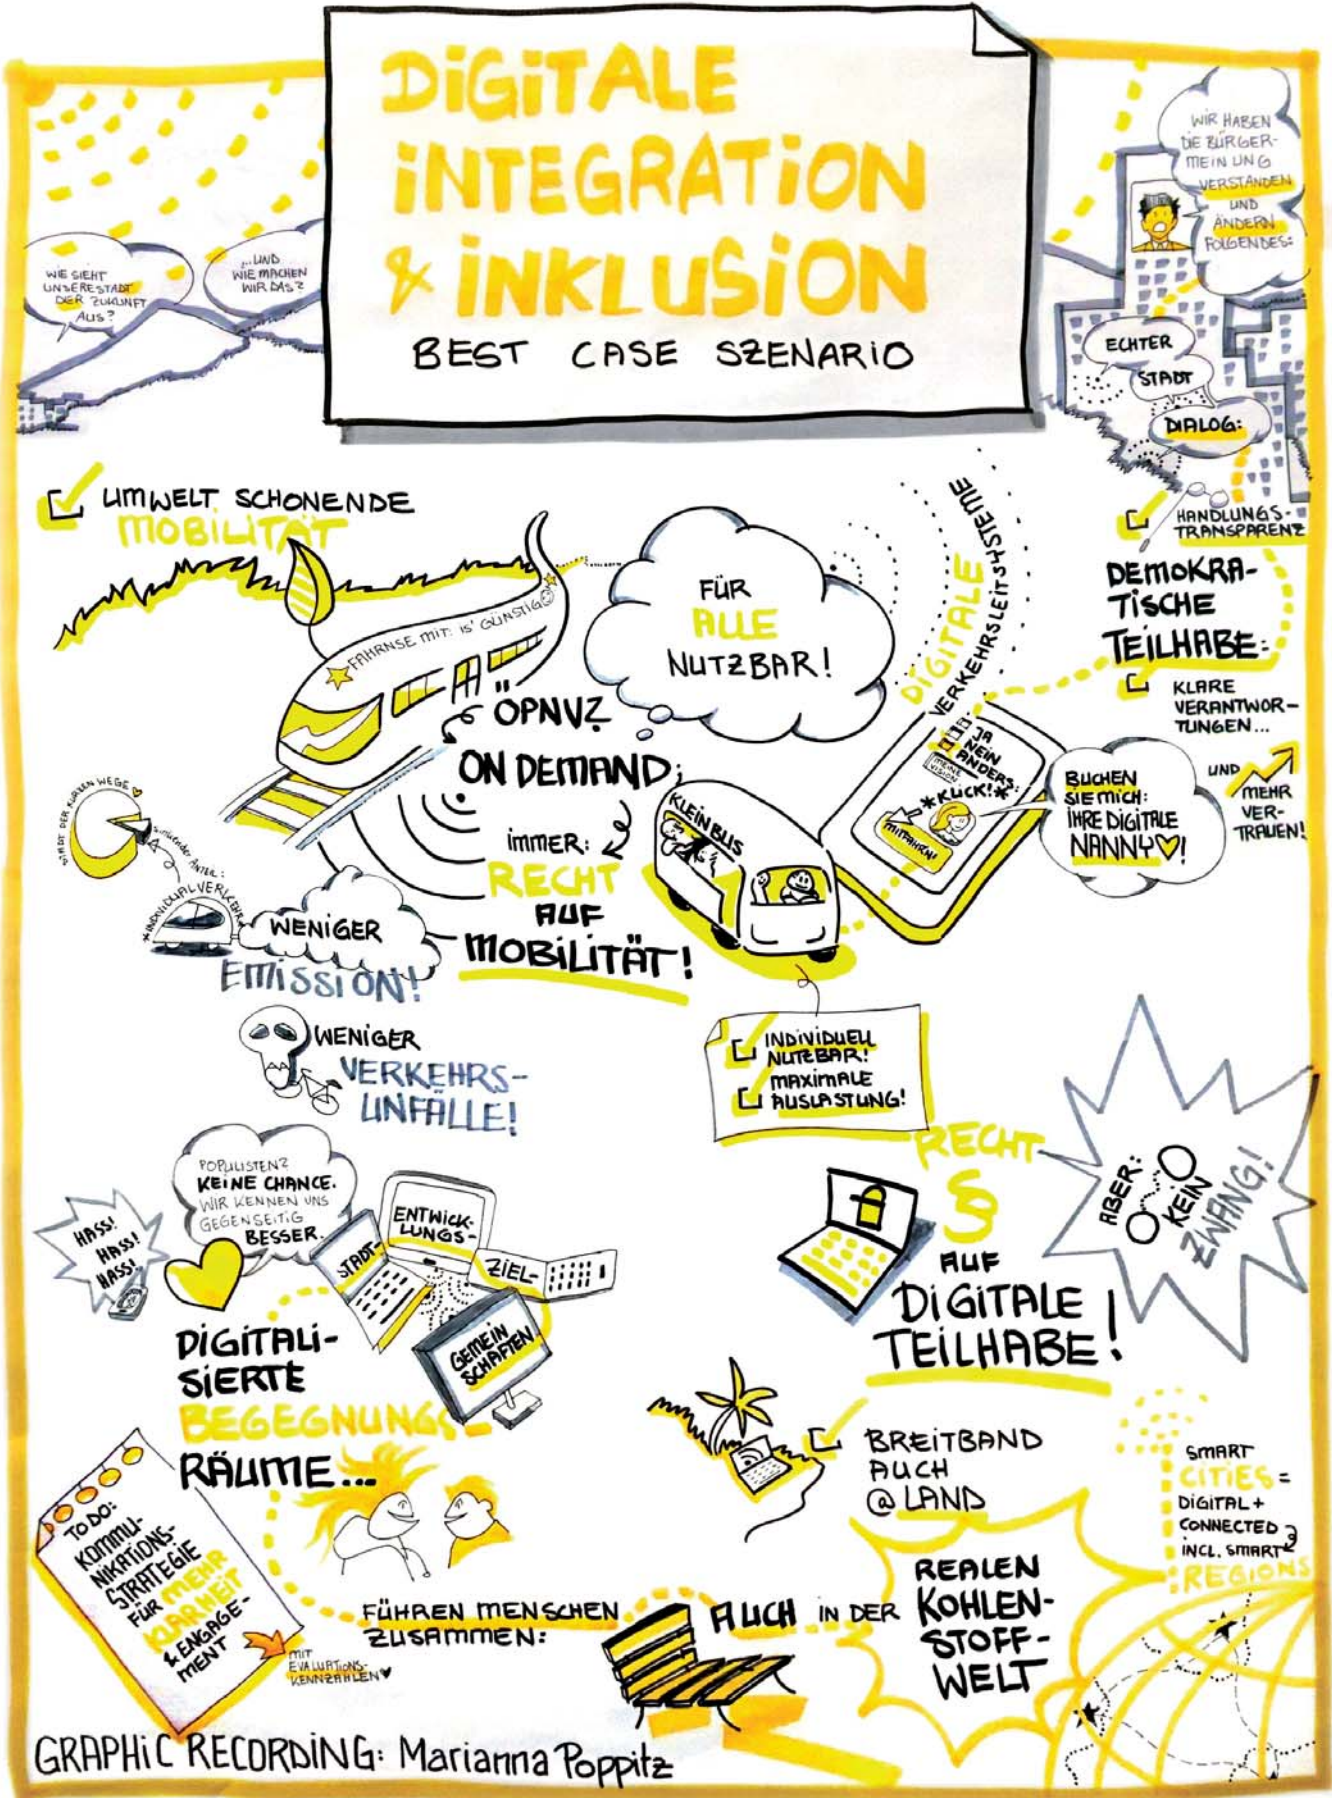 DIGITALE
INTEGRATION
& INKLUSION
BEST CASE SZENARIO
WIE SIEHT
UNSERE STADT
DER ZUKUNFT
AUS?
...UND
WIE MACHEN
WIR DAS?
WIR HABEN
DIE BÜRGER-
MEINUNG
VERSTANDEN
UND
ÄNDERN
FOLGENDES:
ECHTER
STADT
DIALOG:
HANDLUNGS-
TRANSPARENZ
DEMOKRA-
TISCHE
TEILHABE:
KLARE
VERANTWOR-
TUNGEN...
UND
MEHR
VER-
TRAUEN!
UMWELT SCHONENDE
MOBILITÄT
FAHRNSE MIT: IS' GÜNSTIG
FÜR
ALLE
NUTZBAR!
DIGITALE
VERKEHRSLEITSYSTEME
JA
NEIN
ANDERS:
MEINE
VISION
*KLICK!*
MITFAHRN!
BUCHEN
SIE MICH:
IHRE DIGITALE
NANNY♡!
ÖPNV?
ON DEMAND;
IMMER:
RECHT
AUF
MOBILITÄT!
KLEINBUS
STADT DER KURZEN WEGE ♥
ANTEIL:
*INDIVIDUALVERKEHR
WENIGER
EMISSION!
WENIGER
VERKEHRS-
UNFÄLLE!
INDIVIDUELL
NUTZBAR!
MAXIMALE
AUSLASTUNG!
RECHT
§
AUF
DIGITALE
TEILHABE!
ABER:
KEIN
ZWANG!
POPULISTEN?
KEINE CHANCE.
WIR KENNEN UNS
GEGENSEITIG
BESSER.
HASS!
HASS!
HASS!
STADT-
ENTWICK-
LUNGS-
ZIEL-
GEMEIN
SCHAFTEN
DIGITALI-
SIERTE
BEGEGNUNGS-
RÄUME...
BREITBAND
AUCH
@ LAND
SMART
CITIES =
DIGITAL +
CONNECTED
INCL. SMART
REGIONS
TO DO:
KOMMU-
NIKATIONS-
STRATEGIE
FÜR MEHR
KLARHEIT
& ENGAGE-
MENT
MIT
EVALUATIONS-
KENNZAHLEN♥
FÜHREN MENSCHEN
ZUSAMMEN:
AUCH IN DER
REALEN
KOHLEN-
STOFF-
WELT
GRAPHIC RECORDING: Marianna Poppitz